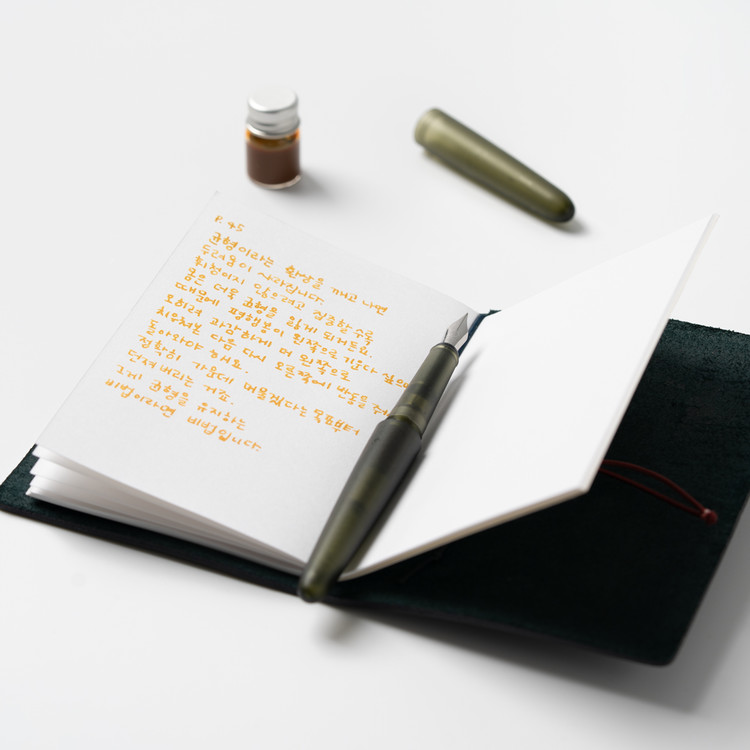 P. 45
균형이라는 환상을 깨고 나면
두려움이 사라집니다.
휘청이지 않으려고 집중할수록
몸은 더욱 균형을 잃게 되거든요.
때문에 평행봉이 왼쪽으로 기운다 싶으면
오히려 과감하게 더 왼쪽으로
치우쳐본 다음 다시 오른쪽에 반동을 주어
돌아와야 해요.
정확히 가운데 머물겠다는 목표부터
던져버리는 거죠.
그게 균형을 유지하는
비법이라면 비법입니다.